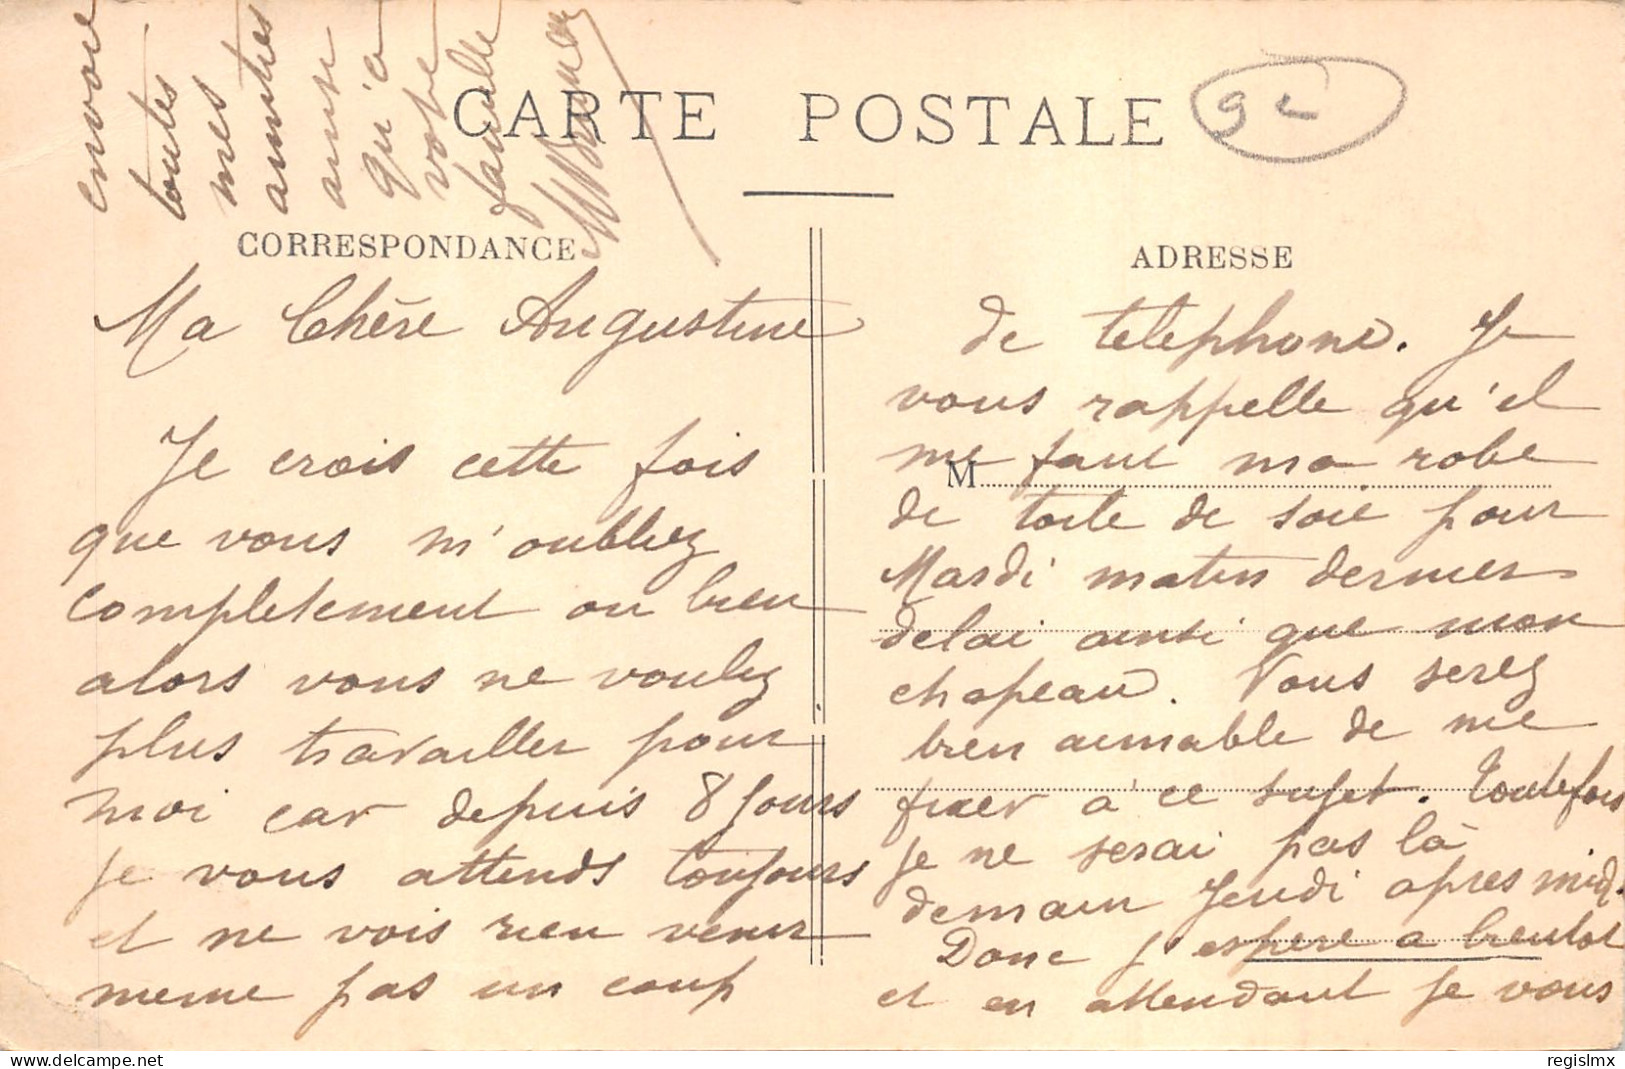 CARTE POSTALE
92
CORRESPONDANCE
ADRESSE
M
Ma Chère Augustine
Je crois cette fois
que vous m'oubliez
completement ou bien
alors vous ne voulez
plus travailler pour
moi car depuis 8 Jours
je vous attends toujours
et ne vois rien venir
meme pas un coup
de telephone. Je
vous rappelle qu'il
me faut ma robe
de toile de soie pour
Mardi matin dernier
delai ainsi que mon
chapeau. Vous serez
bien aimable de me
fixer à ce sujet. Toutefois
je ne serai pas là
demain Jeudi apres midi.
Donc j'espere a bientot
et en attendant je vous
envoie
toutes
mes
amitiés
ainsi
qu'a
votre
famille
www.delcampe.net
regislmx